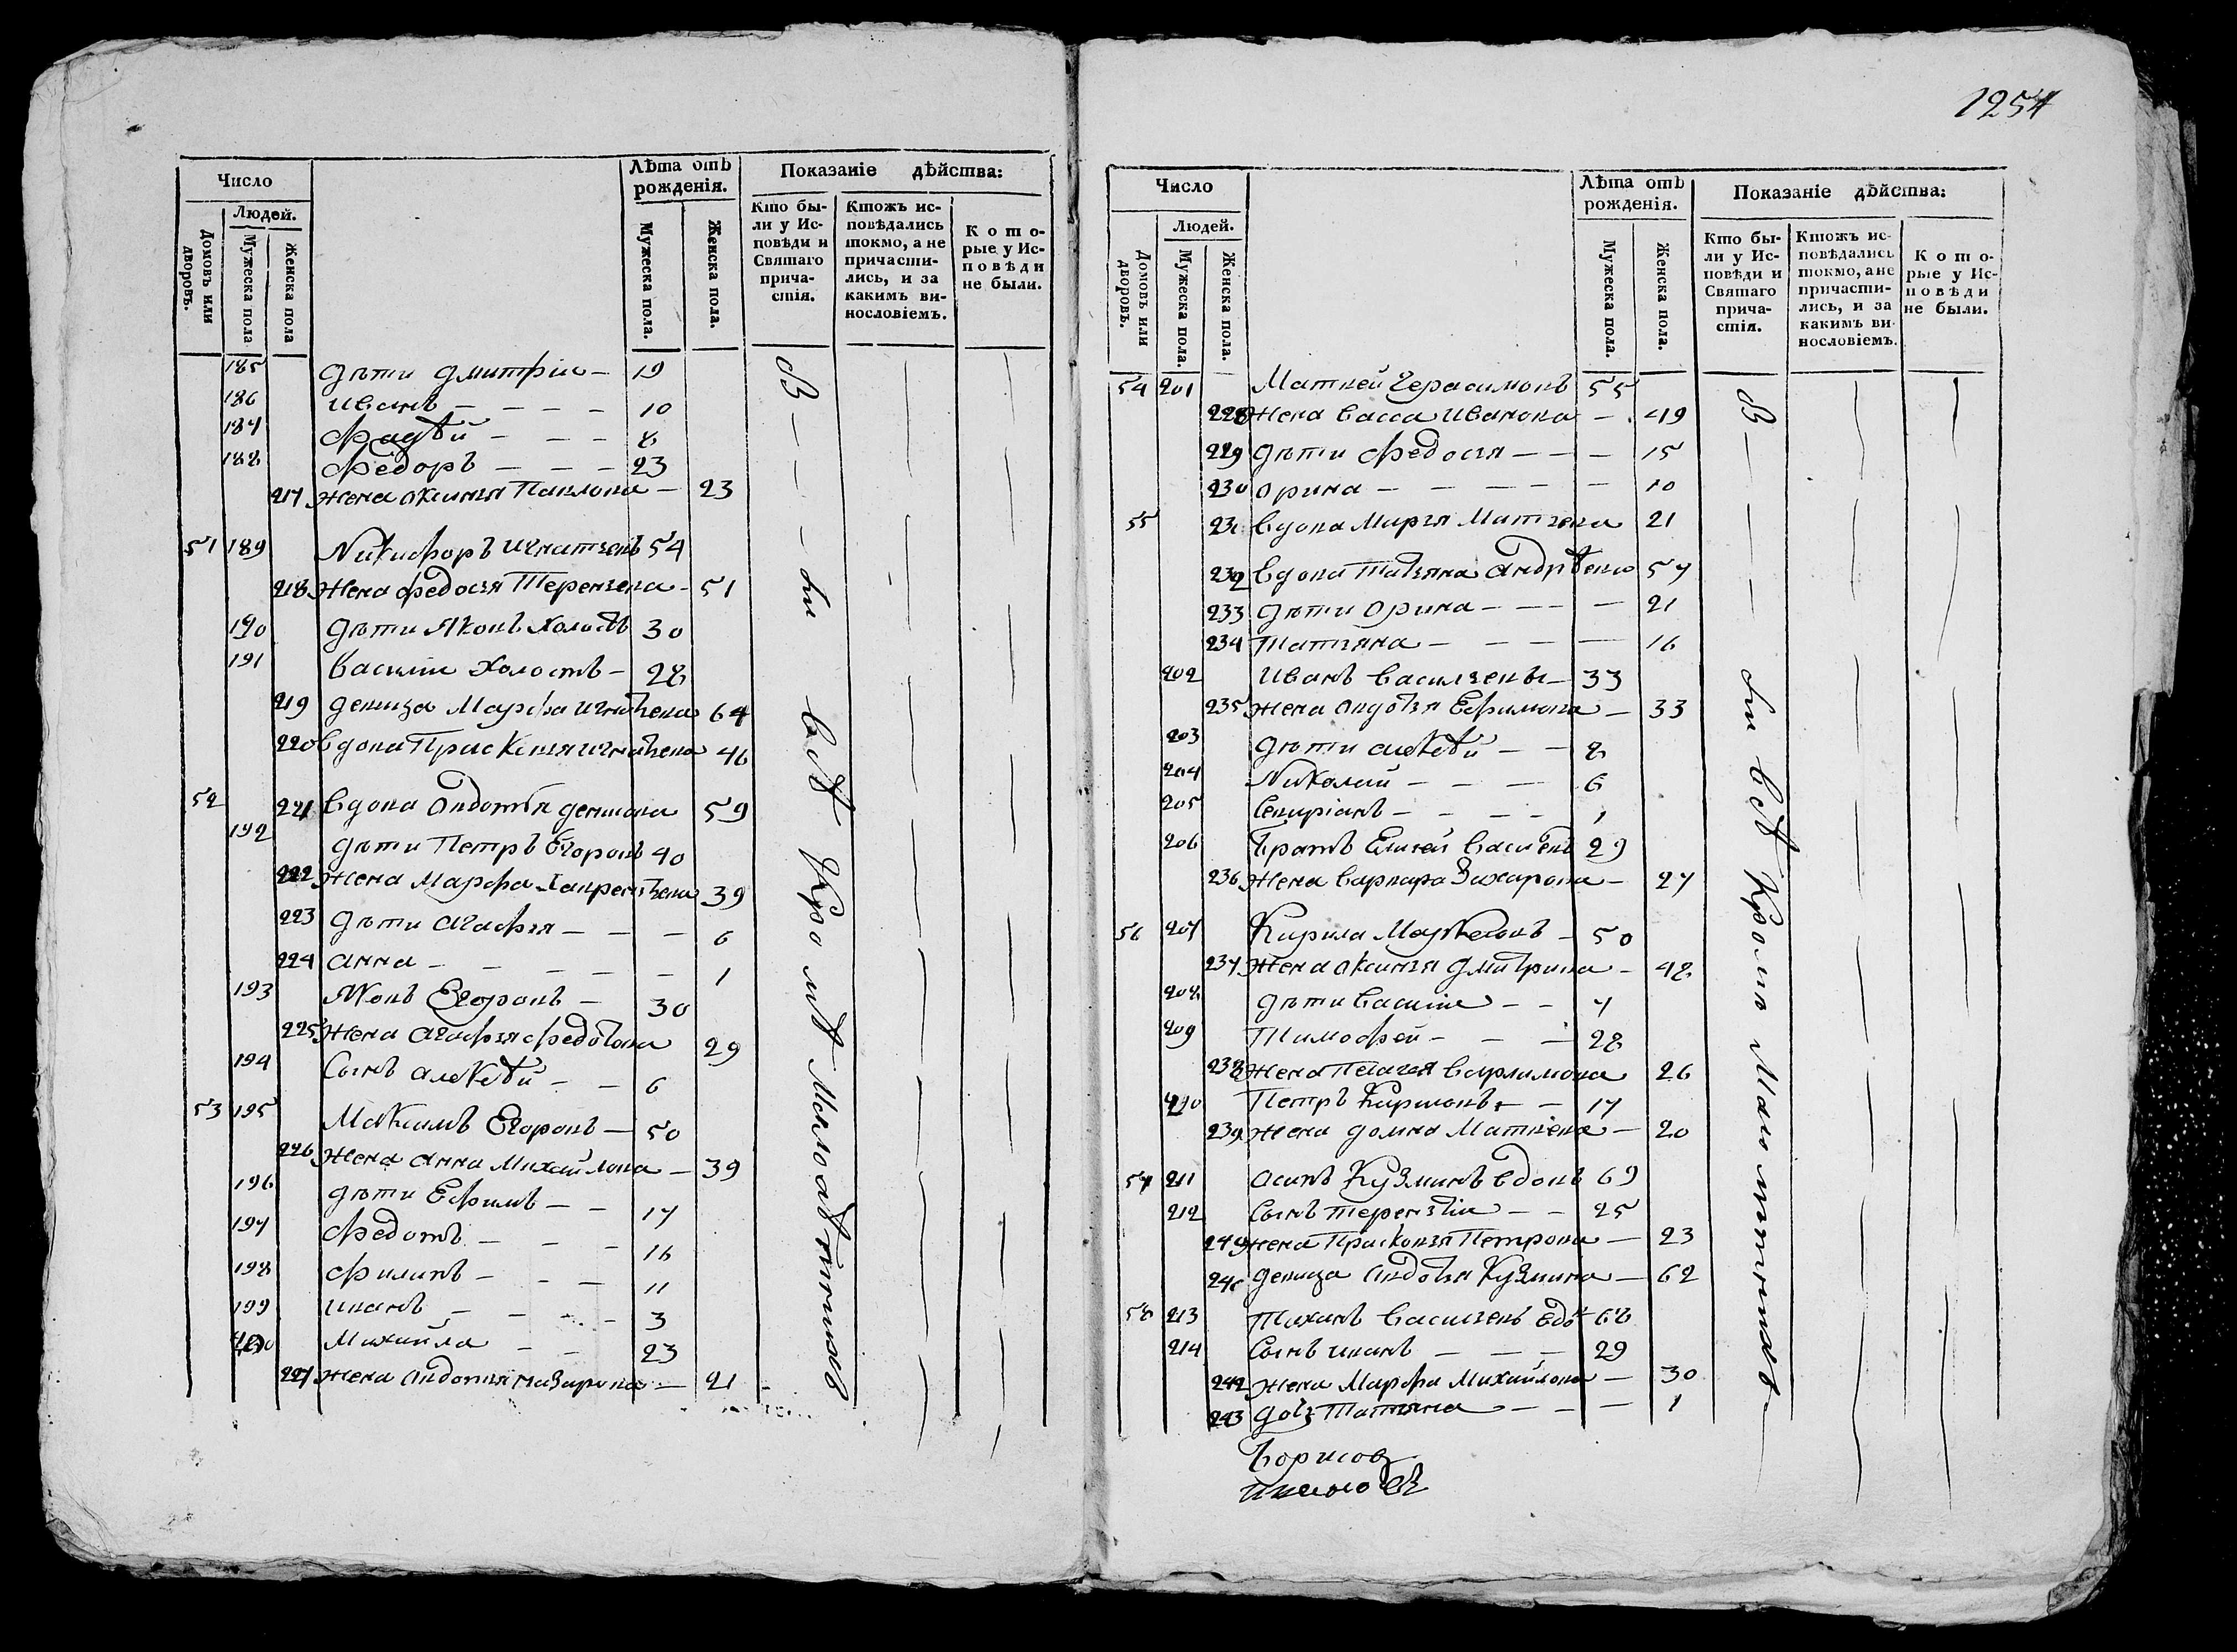 Число
Людей.
Домовъ или дворовъ.
Мужеска пола
Женска пола
Лѣта отъ рожденія.
Мужеска пола.
Женска пола.
Показаніе дѣйства:
Кто бы-
ли у Ис-
повѣди и
Святаго
прича-
стія.
Ктожъ ис-
повѣдались
токмо, а не
причасти-
лись, и за
какимъ ви-
нословіемъ.
Кото-
рые у Ис-
повѣди
не были.
185 дѣти дмитріи — 19
186 иванъ — — — — 10
187 фадѣй — — — 8
188 федоръ — — — 23
217 жена аксинья Павлова — 23
51 189 Никифоръ игнатьевъ 54
218 жена федосья Терентьева - 51
190 дѣти Яковъ холостъ 30
191 василіи холостъ — 28
219 девица Марфа игнатьева 64
220 вдова Прасковья игнатьева 46
52 221 вдова авдотья денисова 59
192 дѣти Петръ Егоровъ 40
222 жена Марфа Лаврентьева 39
223 дѣти агафья — — — 6
224 анна — — — — — 1
193 Яковъ Егоровъ — 30
225 жена агафья федотова 29
194 сынъ алексѣй — — 6
53 195 Максимъ Егоровъ — 50
226 жена анна Михайлова — 39
196 дѣти Ефимъ — — 17
197 федотъ — — — 16
198 филипъ — — — 11
199 иванъ — — — — 3
200 Михайла — — 23
227 жена авдотья назарова — 21
В — — — сіи всѣ кромѣ малолѣтнихъ
1254
Число
Людей.
Домовъ или дворовъ.
Мужеска пола.
Женска пола.
Лѣта отъ рожденія.
Мужеска пола.
Женска пола.
Показаніе дѣйства:
Кто бы-
ли у Ис-
повѣди и
Святаго
прича-
стія.
Ктожъ ис-
повѣдались
токмо, а не
причасти-
лись, и за
какимъ ви-
нословіемъ.
Кото-
рые у Ис-
повѣди
не были.
54 201 Матвей Герасимовъ 55
228 жена васса иванова — 49
229 дѣти федосья — — — 15
230 орина — — — — — 10
55 231 вдова Марья Матвева 21
232 вдова татьяна андрѣева 57
233 дѣти орина — — — — 21
234 татьяна — — — — 16
202 иванъ васильевъ — 33
235 жена авдотья Ефимова — 33
203 дѣти алексѣй — — 8
204 Николай — — — 6
205 — — — — 1
206 братъ Елисей васильевъ 29
236 жена варвара Захарова — 27
56 207 Кирила — 50
237 жена аксинья дмитрива — 48
208 дѣти василіи — — 7
209 Тимофей — — — 28
238 жена Пелагея варламова 26
210 Петръ Кириловъ — — 17
239 жена домна Матвева — 20
57 211 асипъ Кузминъ вдовъ 69
212 сынъ терентіи — — 25
240 жена Прасковья Петрова — 23
241 девица авдотья Кузмина — 62
58 213 Тиханъ васильевъ вдо 68
214 сынъ иванъ — — — 29
242 жена Марфа Михайлова — 30
243 дочь Татьяна — — — 1
В — — — сіи всѣ кромѣ малолѣтнихъ